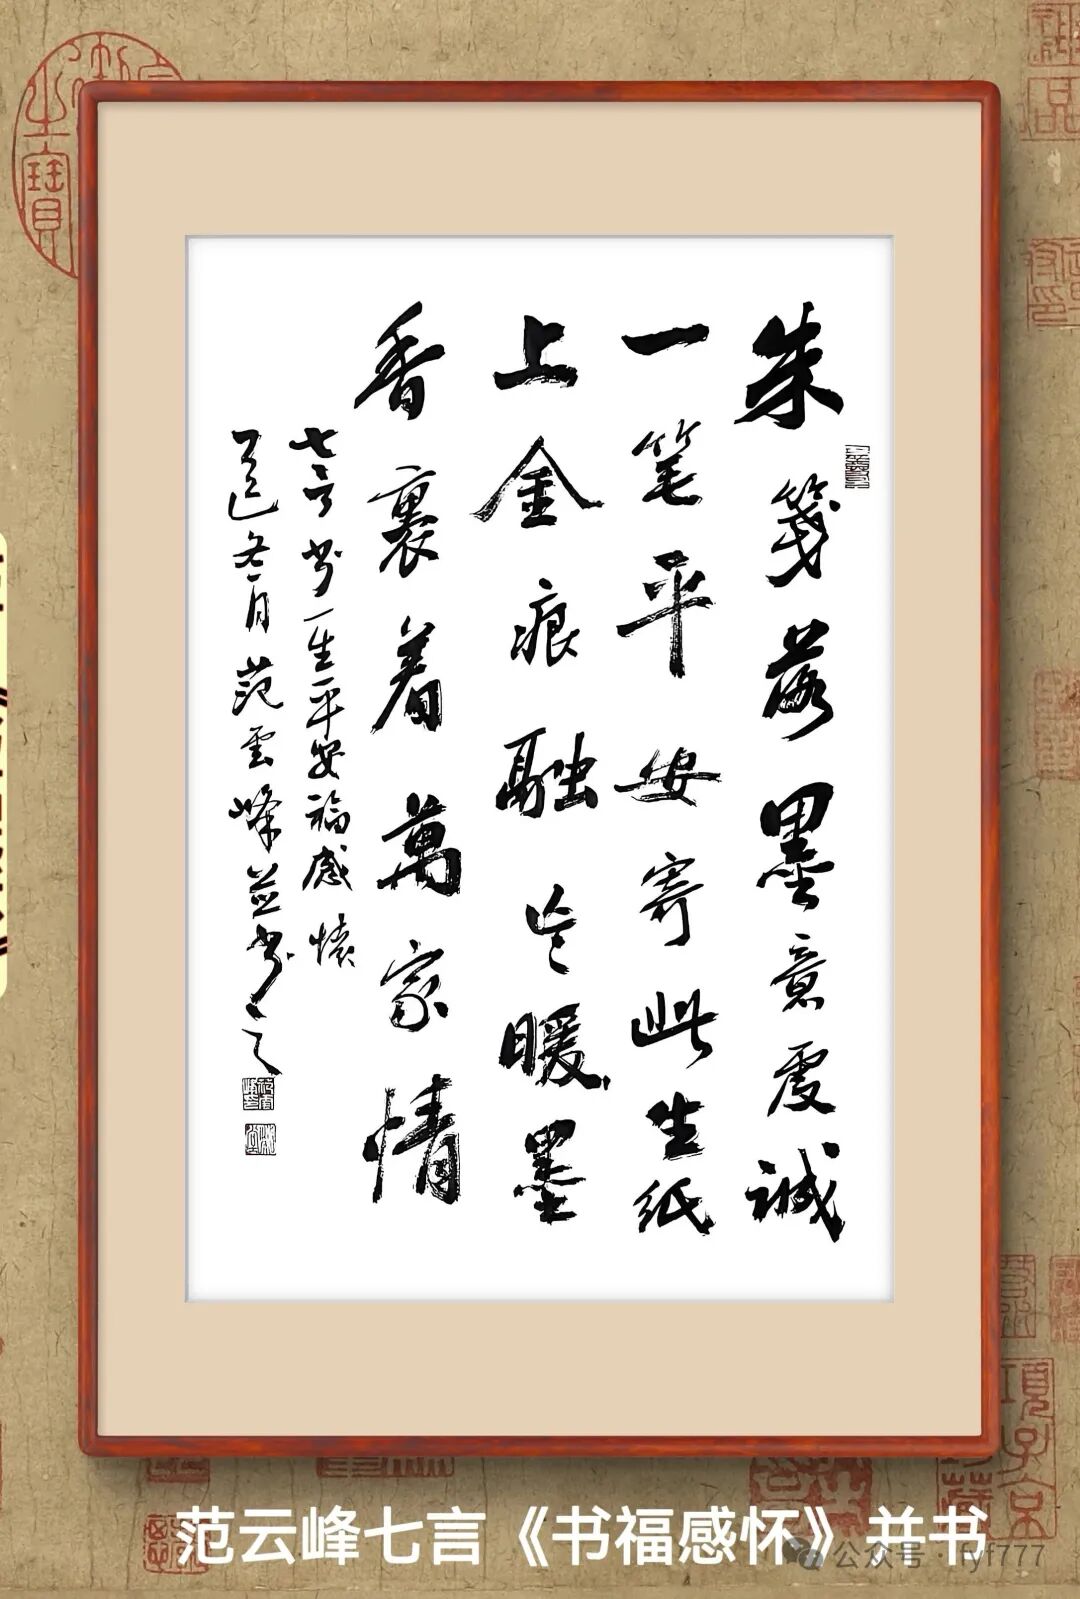 朱箋落墨意虔誠
一笔平安寄此生紙
上金痕融冷暖墨
香裹着萬家情
七言书一生平安福感懷
乙巳冬月范雲峰並书之
范云峰七言《书福感怀》并书
公众号·fyf777